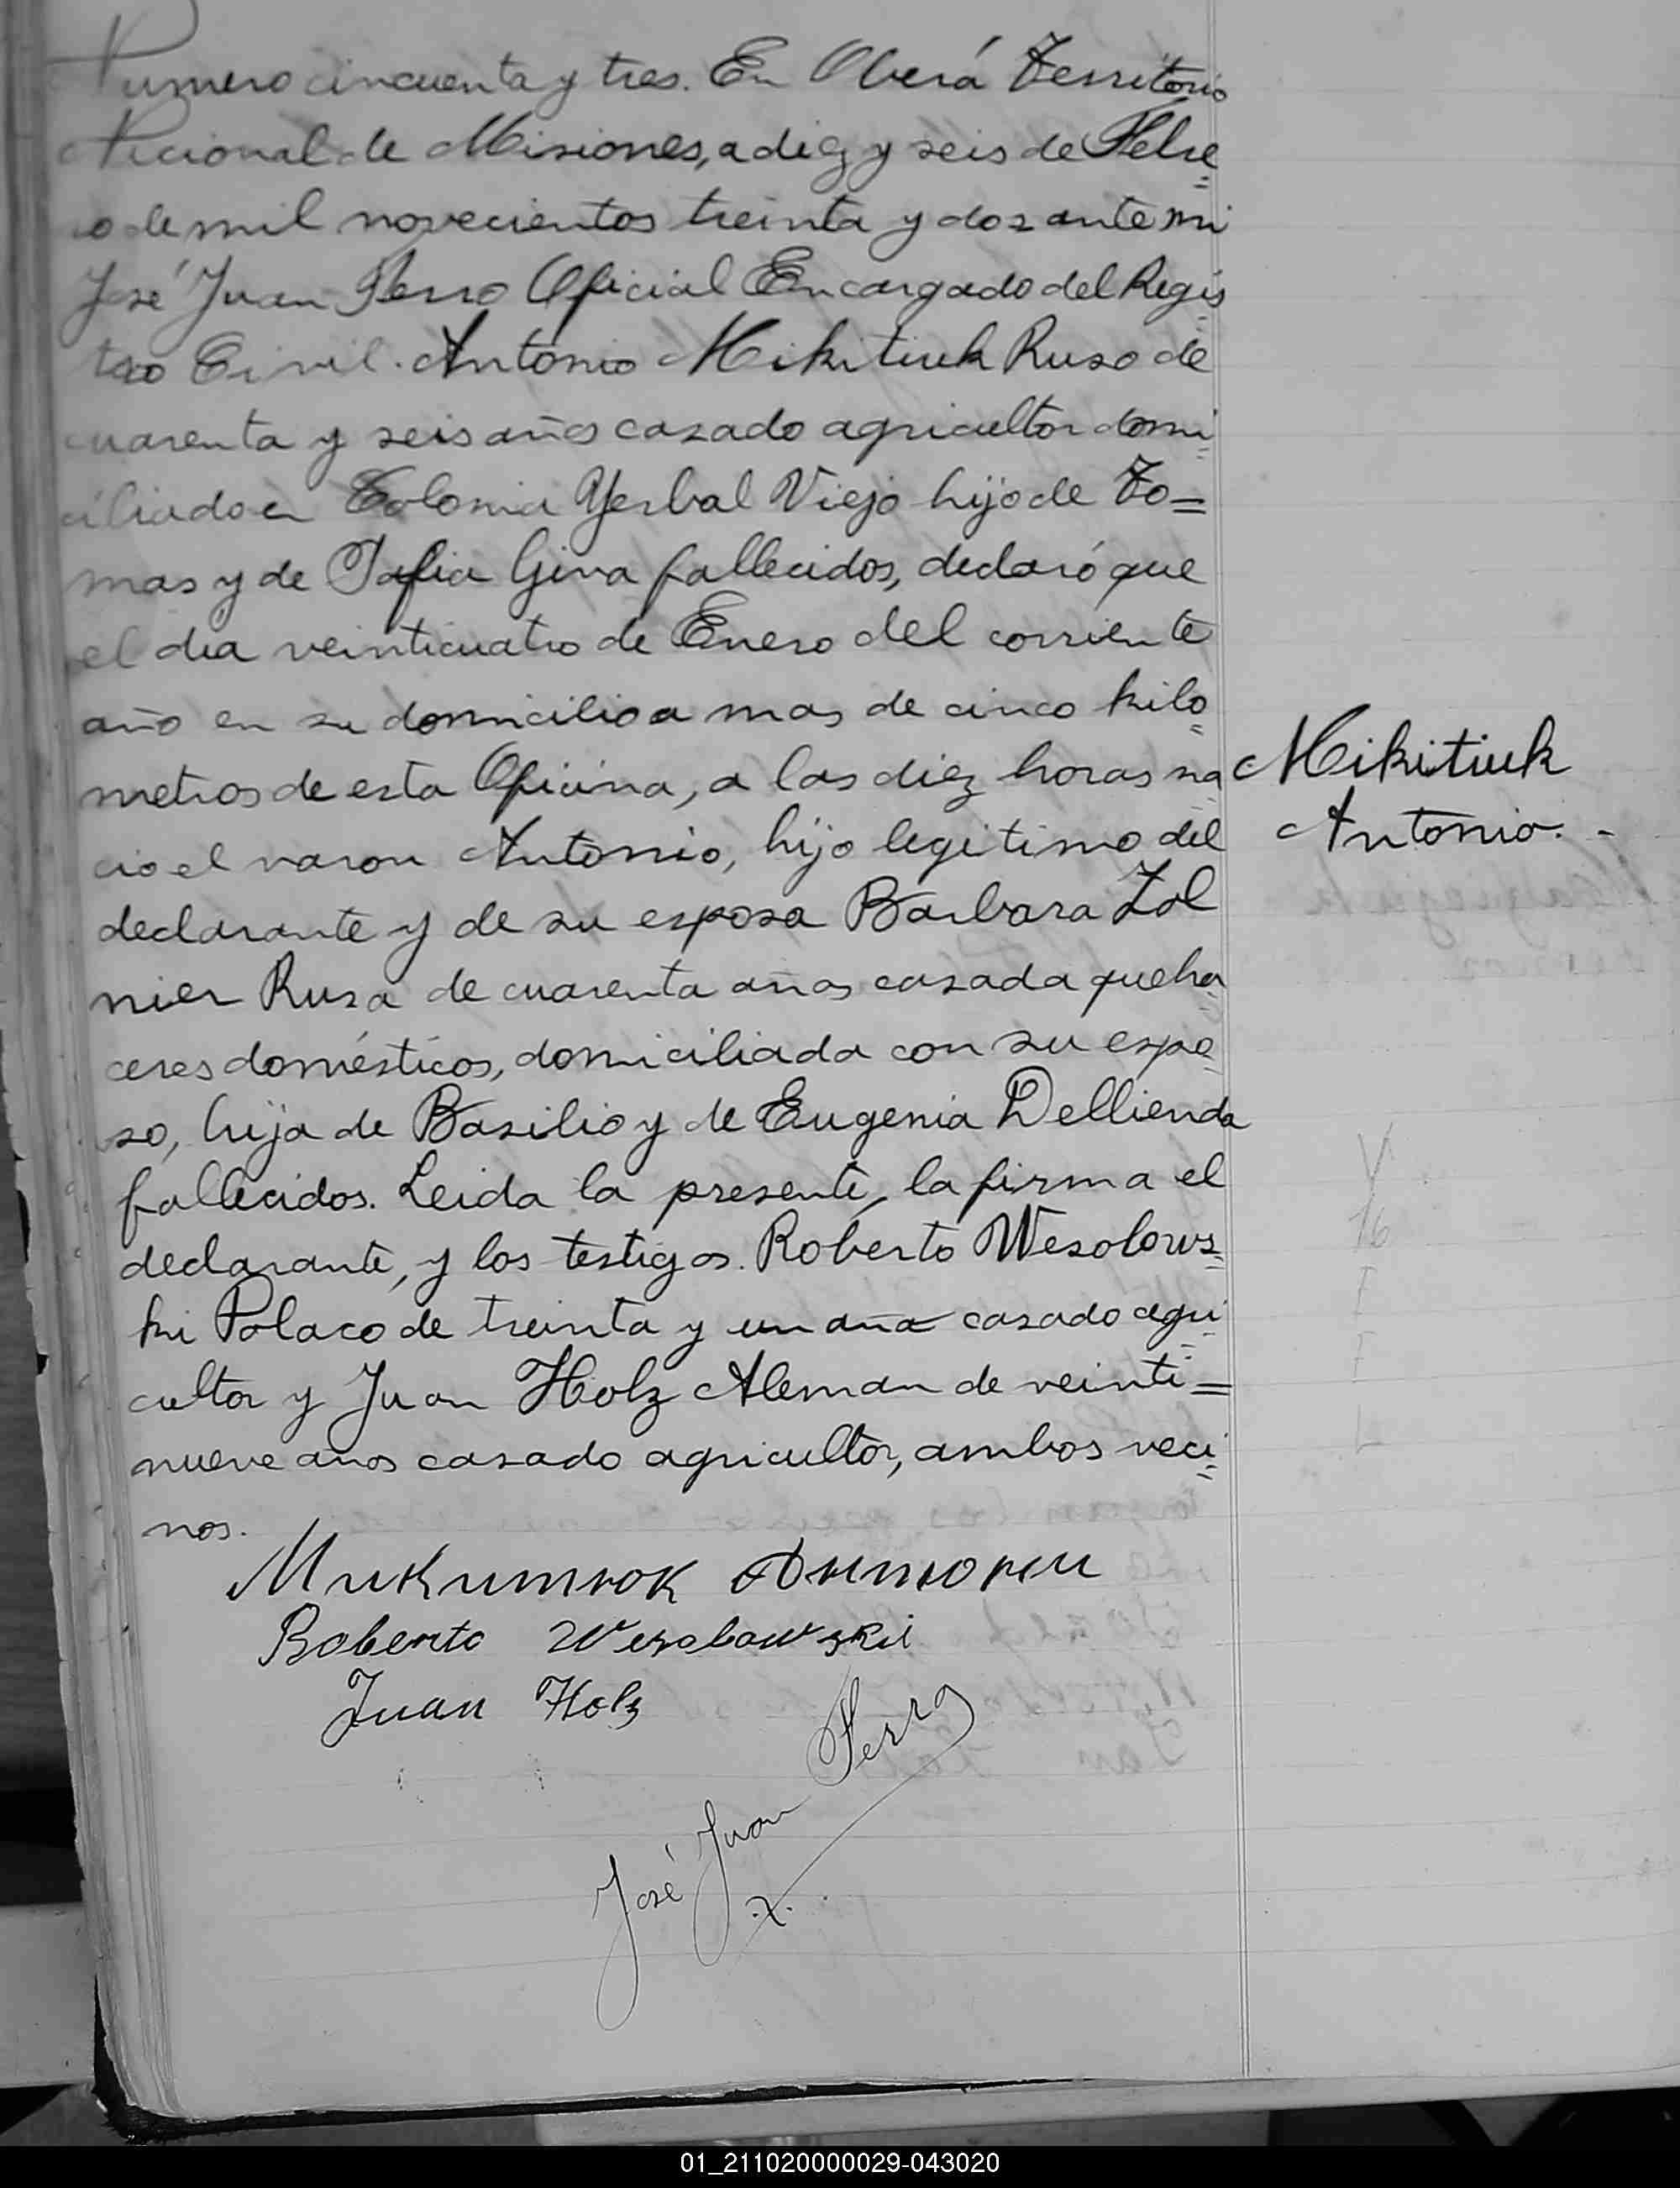 Numero cincuenta y tres. En Oberá Territorio
Nacional de Misiones, a diez y seis de Febre=
ro de mil novecientos treinta y dos ante mi
José Juan Ferro Oficial Encargado del Regis
tro Civil. Antonio Mikitiuk Ruso de
cuarenta y seis años casado agricultor domi=
ciliado en Colonia Yerbal Viejo hijo de To=
mas y de Safia Giva fallecidos, declaró que
el dia veinticuatro de Enero del corriente
año en su domicilio a mas de cinco kilo=
metros de esta Oficina, a las diez horas na
cio el varon Antonio, hijo legitimo del
declarante y de su esposa Barbara Zol
nier Rusa de cuarenta años casada queha
ceres domésticos, domiciliada con su espo=
so, hija de Basilio y de Eugenia Dellienda
fallecidos. Leida la presente, la firma el
declarante, y los testigos. Roberto Wesolows=
ki Polaco de treinta y un año casado agri=
cultor y Juan Holz Aleman de veinti=
nueve años casado agricultor, ambos veci=
nos.
Mikitiuk
Antonio. -
Микитюк Антони
Roberto Wesolowskii
Juan Holz
José Juan Ferro
V
16
01_211020000029-043020